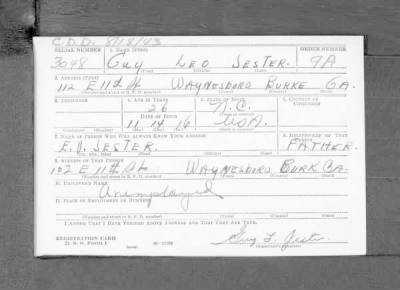 C.D.D. 8/18/43
SERIAL NUMBER 1. NAME (Print) ORDER NUMBER
3048 GUY LEO SESTER. 9A
(First) (Middle) (Last)
2. ADDRESS (Print)
112 E 11th St WAYNESBORO BURKE GA.
(Number and street or R. F. D. number) (Town) (County) (State)
3. TELEPHONE 4. AGE IN YEARS 5. PLACE OF BIRTH 6. COUNTRY OF CITIZENSHIP
26 N.C.
DATE OF BIRTH
11 14 16 USA.
(Mo.) (Day) (Yr.)
7. NAME OF PERSON WHO WILL ALWAYS KNOW YOUR ADDRESS 8. RELATIONSHIP OF THAT PERSON
E. J. SESTER. FATHER.
(Mr., Mrs., Miss) (First) (Middle) (Last)
9. ADDRESS OF THAT PERSON
112 E 11th St WAYNESBORO BURK GA.
(Number and street or R. F. D. number) (Town) (County) (State)
10. EMPLOYER'S NAME
Unemployed
11. PLACE OF EMPLOYMENT OR BUSINESS
(Number and street or R. F. D. number) (Town) (County) (State)
I AFFIRM THAT I HAVE VERIFIED ABOVE ANSWERS AND THAT THEY ARE TRUE.
REGISTRATION CARD
D. S. S. FORM 1
Guy L. Sester
(Registrant's signature)